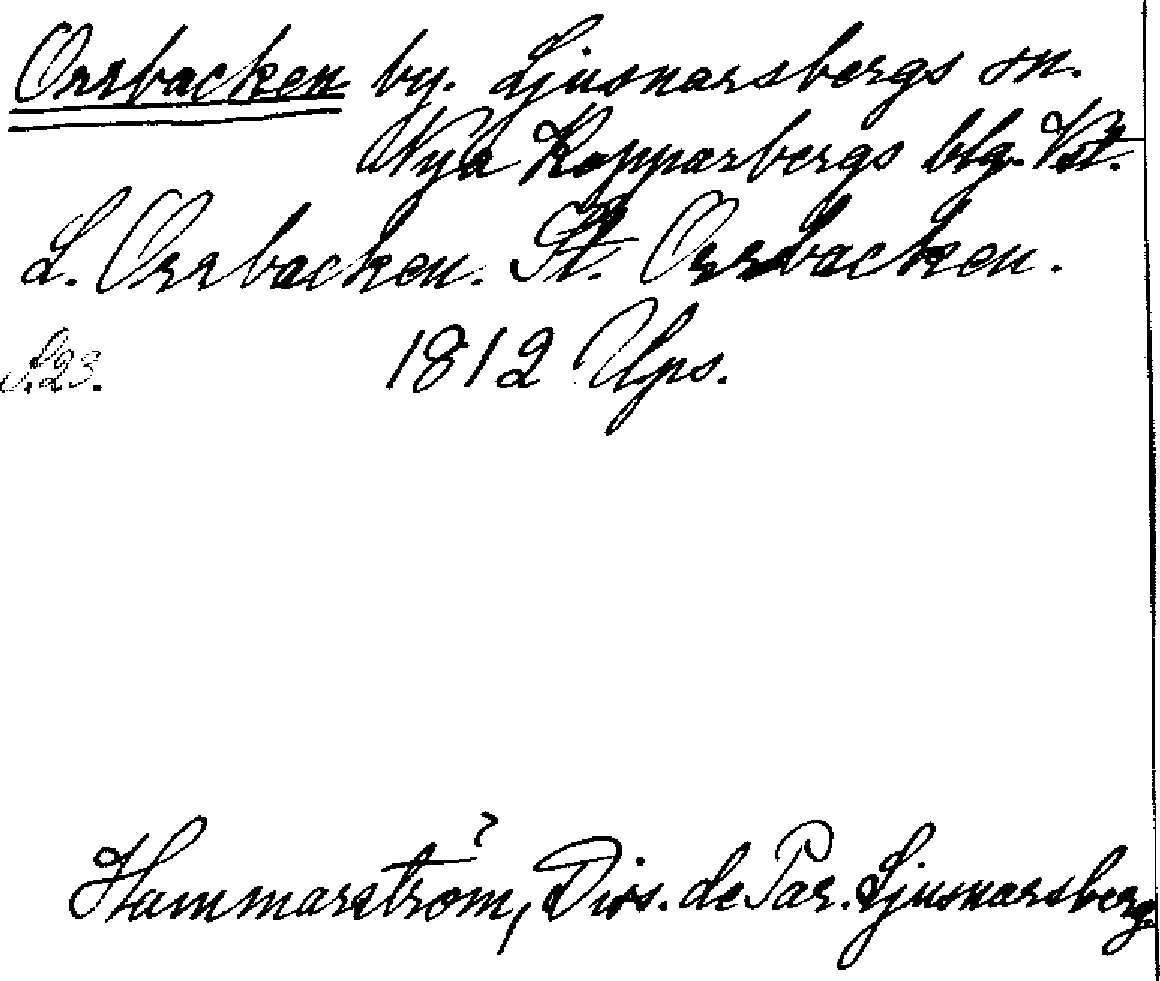 Orrbacken by. Ljusnarsbergs sn.
Nya Kopparbergs blg. Vst.
L. Orrbacken. St. Orrbacken.
S.23. 1812 Ups.
Hammarström, Diss. de Par. Ljusnarsberg.